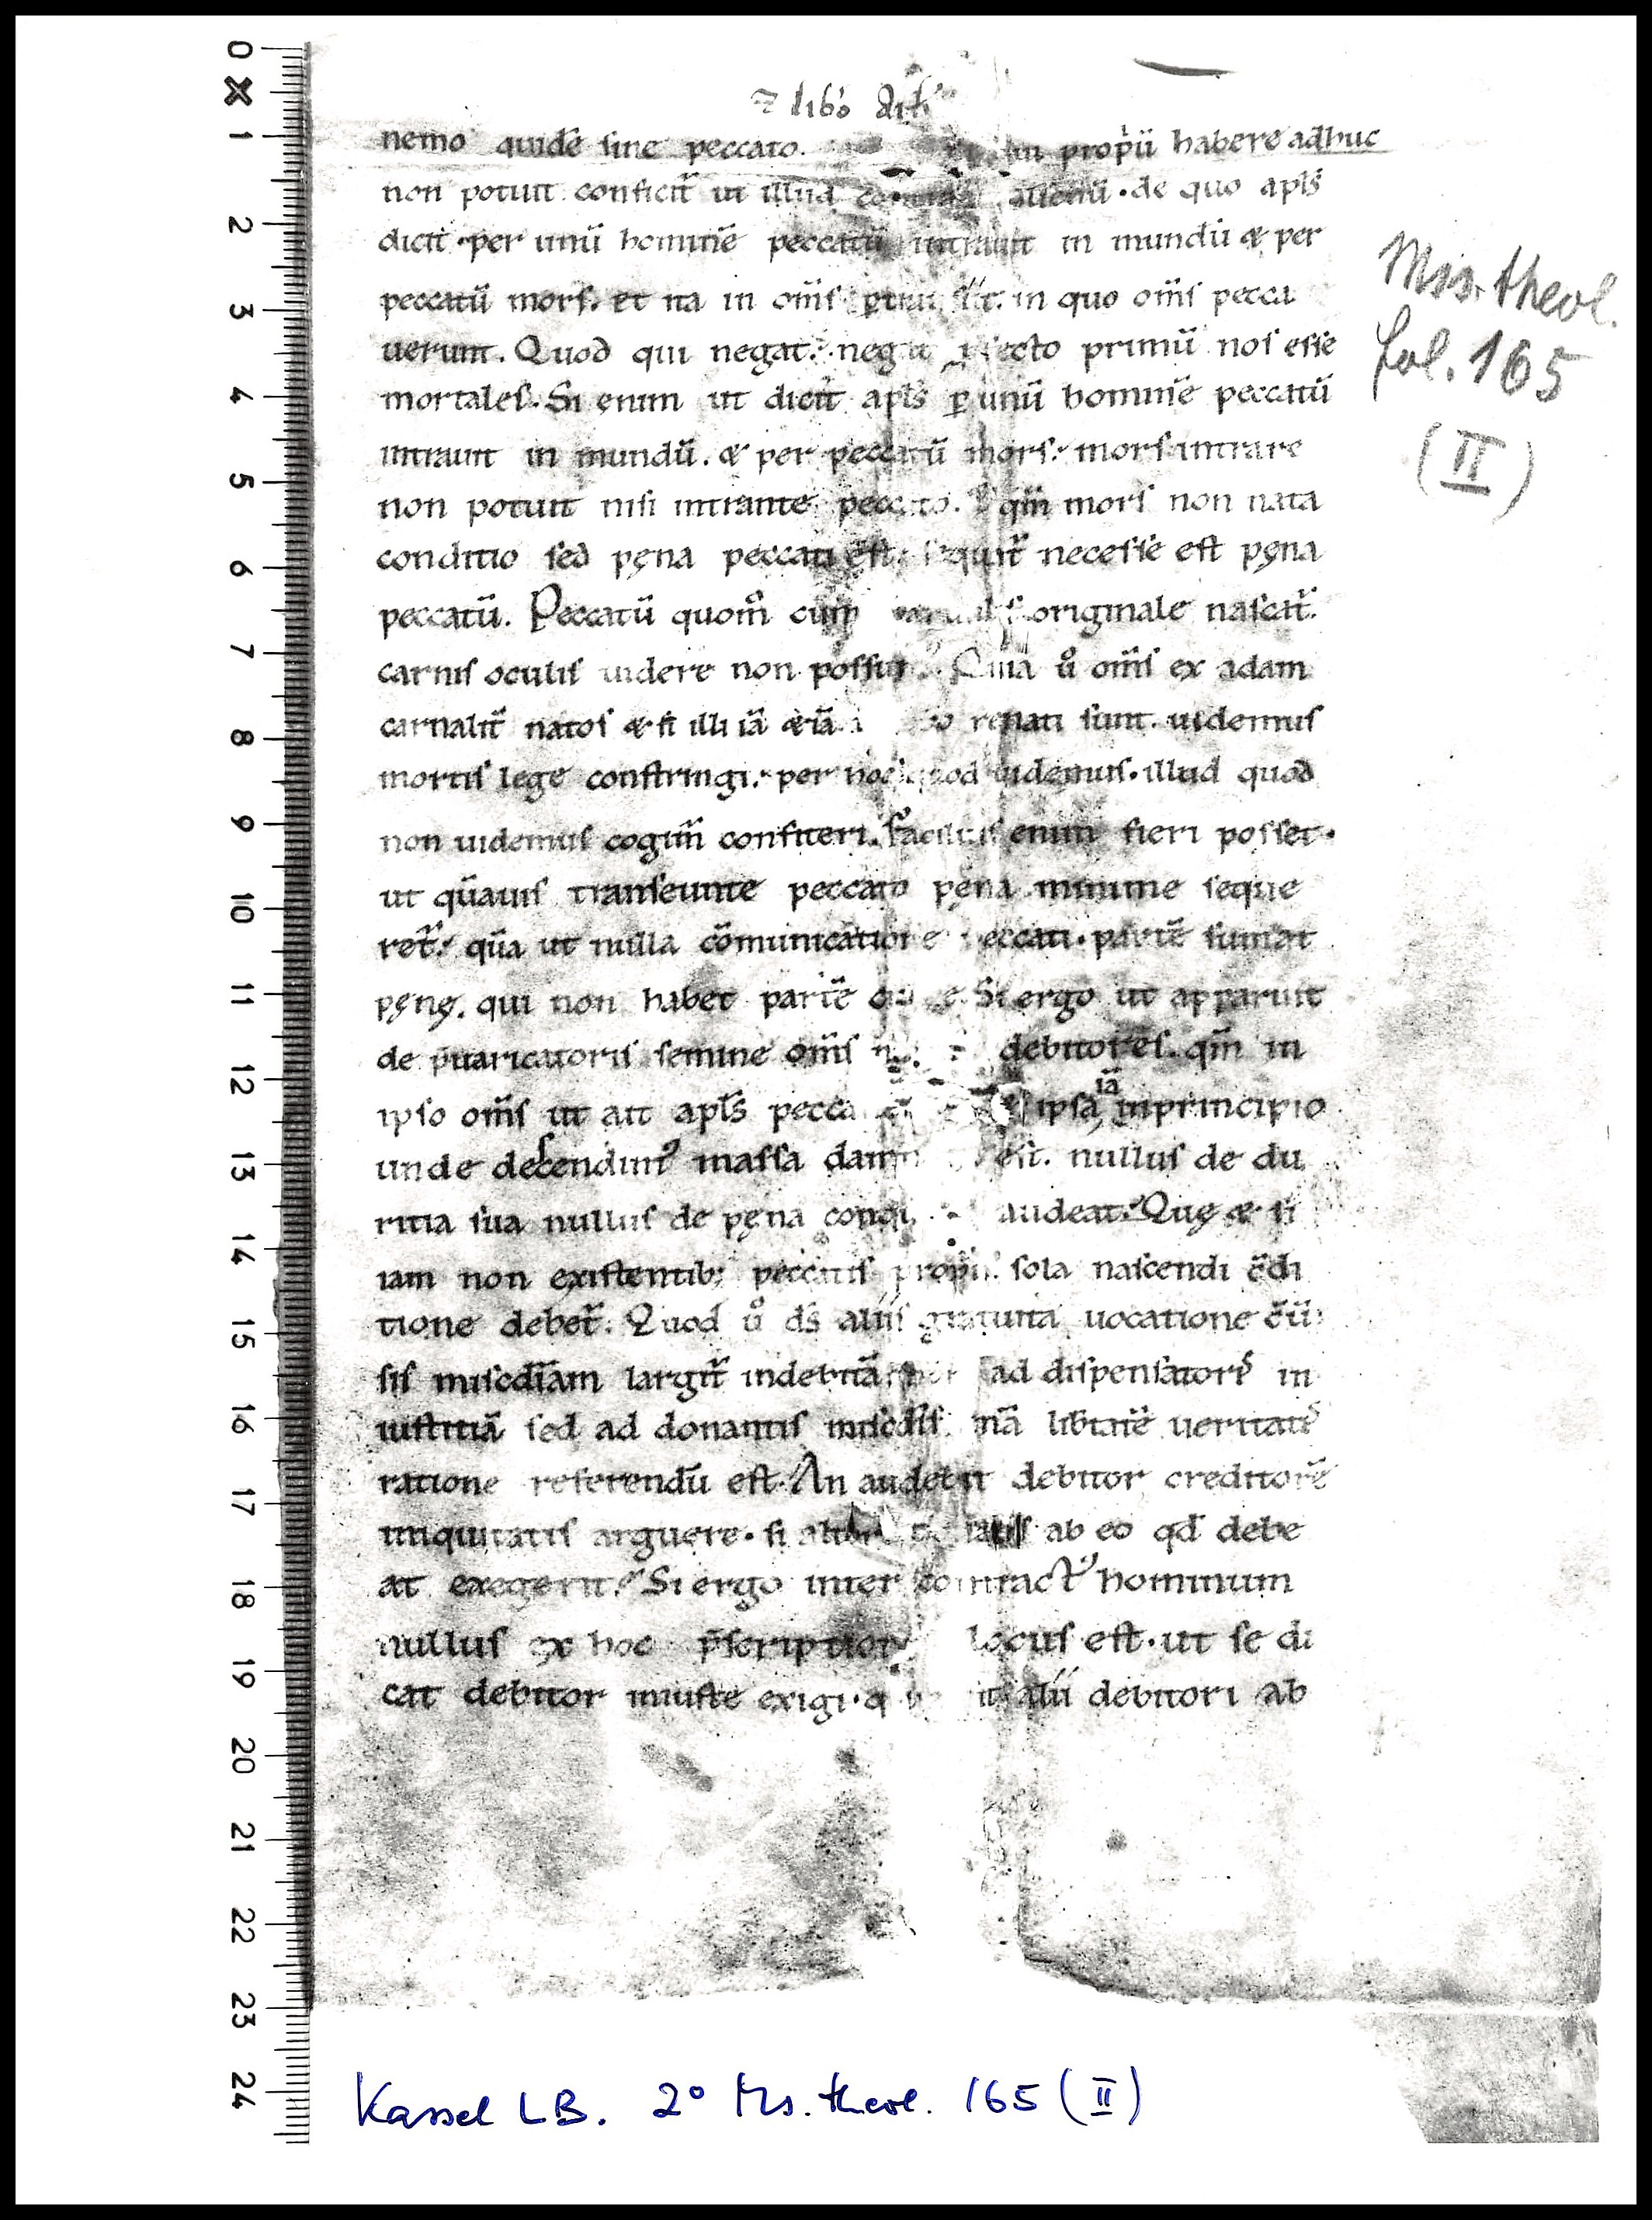 0
1
2
3
4
5
6
7
8
9
10
11
12
13
14
15
16
17
18
19
20
21
22
23
24
nemo quidē sine peccato. propiū habere adhuc
non potuit conficit̄ ut illud de quo apl̄s
dicit per unū hominē peccatū intrauit in mundū & per
peccatū mors. et ita in om̄s in quo om̄s pecca
uerunt. Quod qui negat primū nos esse
mortales. Si enim ut dicit apl̄s ꝑ unū hominē peccatū
intrauit in mundū. & per peccatū mors. mors intrare
non potuit nisi intrante peccato. qm̄ mors non nata
conditio sed pęna peccati est. necesse est pęna
peccatū. Peccatū quom̊ cum originale nascat̄.
carnis oculis uidere non Quia ů om̄s ex adam
carnalit̄ natos & si illi iā renati sunt. uidemus
mortis lege constringi. per hoc quod uidemus. illud quod
non uidemus cogim̄ confiteri. facilius enim fieri posset.
ut qūauis transeunte peccato pęna minime seque
ret̄. qūa ut nulla cōmunicatione peccati. partē sumat
pęnę. qui non habet partē Si ergo ut apparuit
de p̄uaricatoris semine om̄s debitores. qm̄ in
ipso om̄s ut ait apl̄s ipsa iā inprincipio
unde descendim᾽ massa est. nullus de du
ritia sua nullus de pęna audeat. Quę & si
iam non existentib; peccatis propiis sola nascendi c̄di
tione debet̄. Quod ů ds̄ aliis gratuita uocatione c̄ū
sis misc̄diam largit̄ indebitā ad dispensatoris in
iustitiā sed ad donantis libtatē ueritatis
ratione referendū est. An audebit debitor creditorē
iniquitatis arguere. si ab eo qd̄ debe
at exegerit. Si ergo inter contract᾽ hominum
nullus ex hoc locus est. ut se di
cat debitor iniuste exigi. alii debitori ab
Mss. theol.
fol. 165
(II)
Kassel LB. 2° Ms. theol. 165 (II)